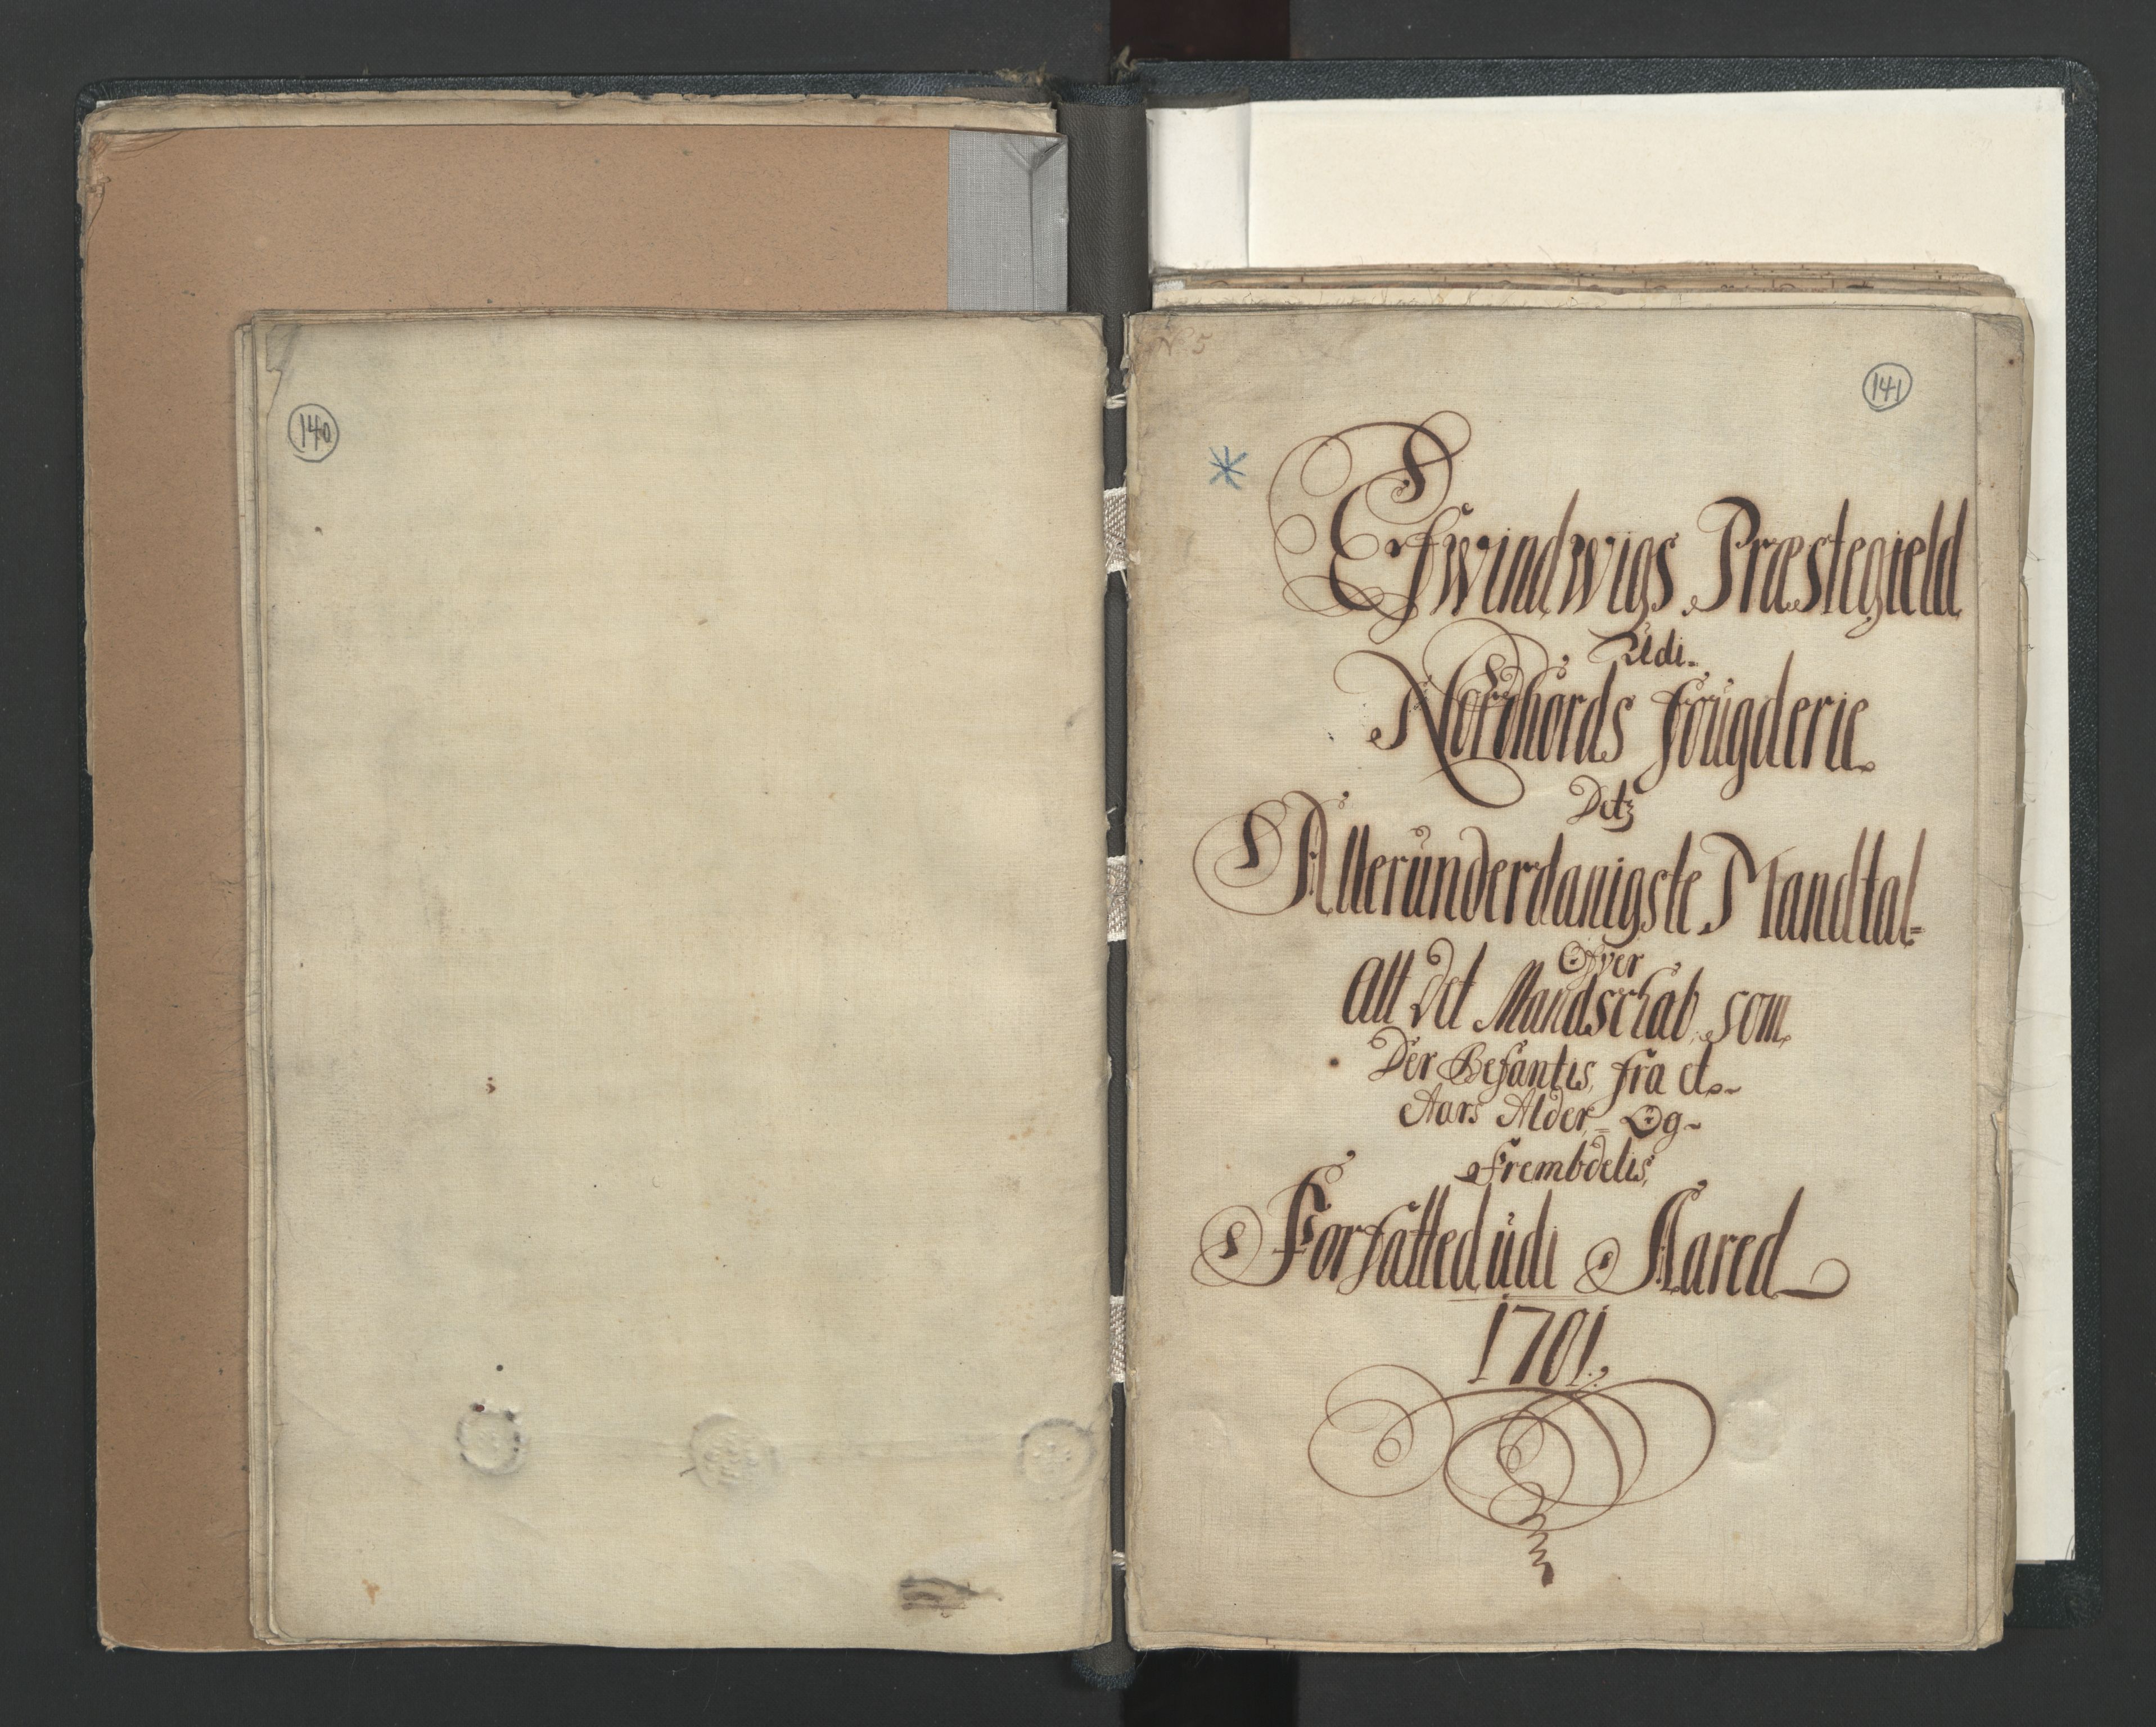 140
N. 5
141
Efwindwigs Præstegield
Udi
Nordhords fougderie
Detz
Allerunderdanigste Mandtal
Ofver
Alt det Mandschab som
Der Befantis, fra et
Aars Alder, Og
frembdelis
Forfatted udi Aared
1701.